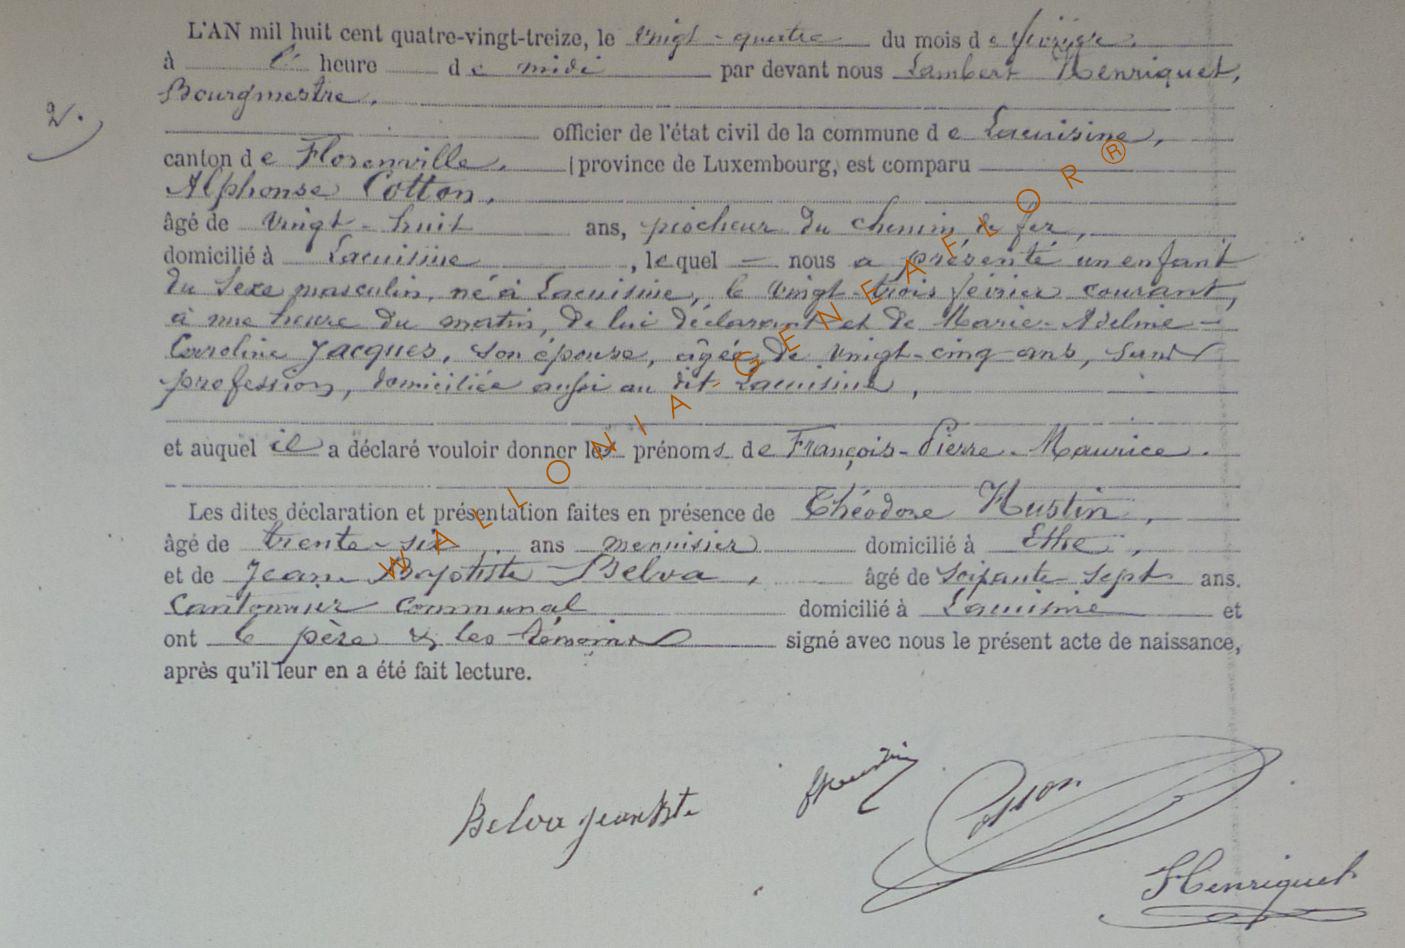 L'AN mil huit cent quatre-vingt-treize, le vingt-quatre du mois de février,
à heure de midi par devant nous Lambert Henriquet,
Bourgmestre,
2.
officier de l'état civil de la commune de Lacuisine,
canton de Florenville, (province de Luxembourg, est comparu
Alphonse Cotton,
âgé de vingt-huit ans, piocheur du chemin de fer,
domicilié à Lacuisine, lequel nous a présenté un enfant
du sexe masculin, né à Lacuisine, le vingt-trois février courant,
à une heure du matin, de lui déclarant et de Marie-Adeline-
Caroline Jacques, son épouse, âgée de vingt-cinq ans, sans
profession, domiciliée aussi au dit Lacuisine,
et auquel il a déclaré vouloir donner les prénoms de François-Pierre-Maurice.
Les dites déclaration et présentation faites en présence de Théodore Hustin,
âgé de trente-six ans menuisier domicilié à Ethe,
et de Jean Baptiste Belva, âgé de soixante-sept ans.
Cantonnier communal domicilié à Lacuisine et
ont le père & les témoins signé avec nous le présent acte de naissance,
après qu'il leur en a été fait lecture.
WALLONIA-GENEAFLOR®
Belva jean Bte
Hustin
Cotton
Henriquet